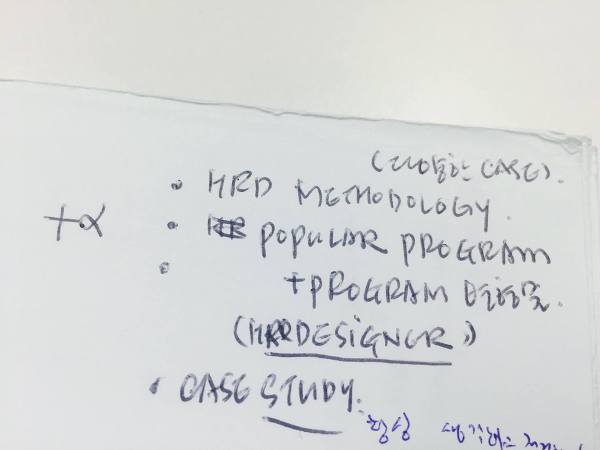 (다양한 CASE).
• HRD METHODOLOGY.
+α • POPULAR PROGRAM
• + PROGRAM
(HRDESIGNER)
• CASE STUDY.
항상